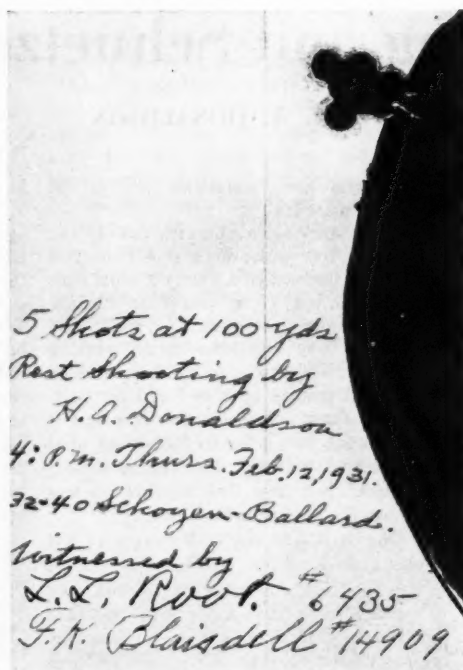 5 Shots at 100 yds
Rest Shooting by
H.A. Donaldson
4: P.M. Thurs. Feb. 12, 1931.
32-40 Schoyen-Ballard.
Witnessed by
L.L. Root. #6435
F.K. Blaisdell #14909